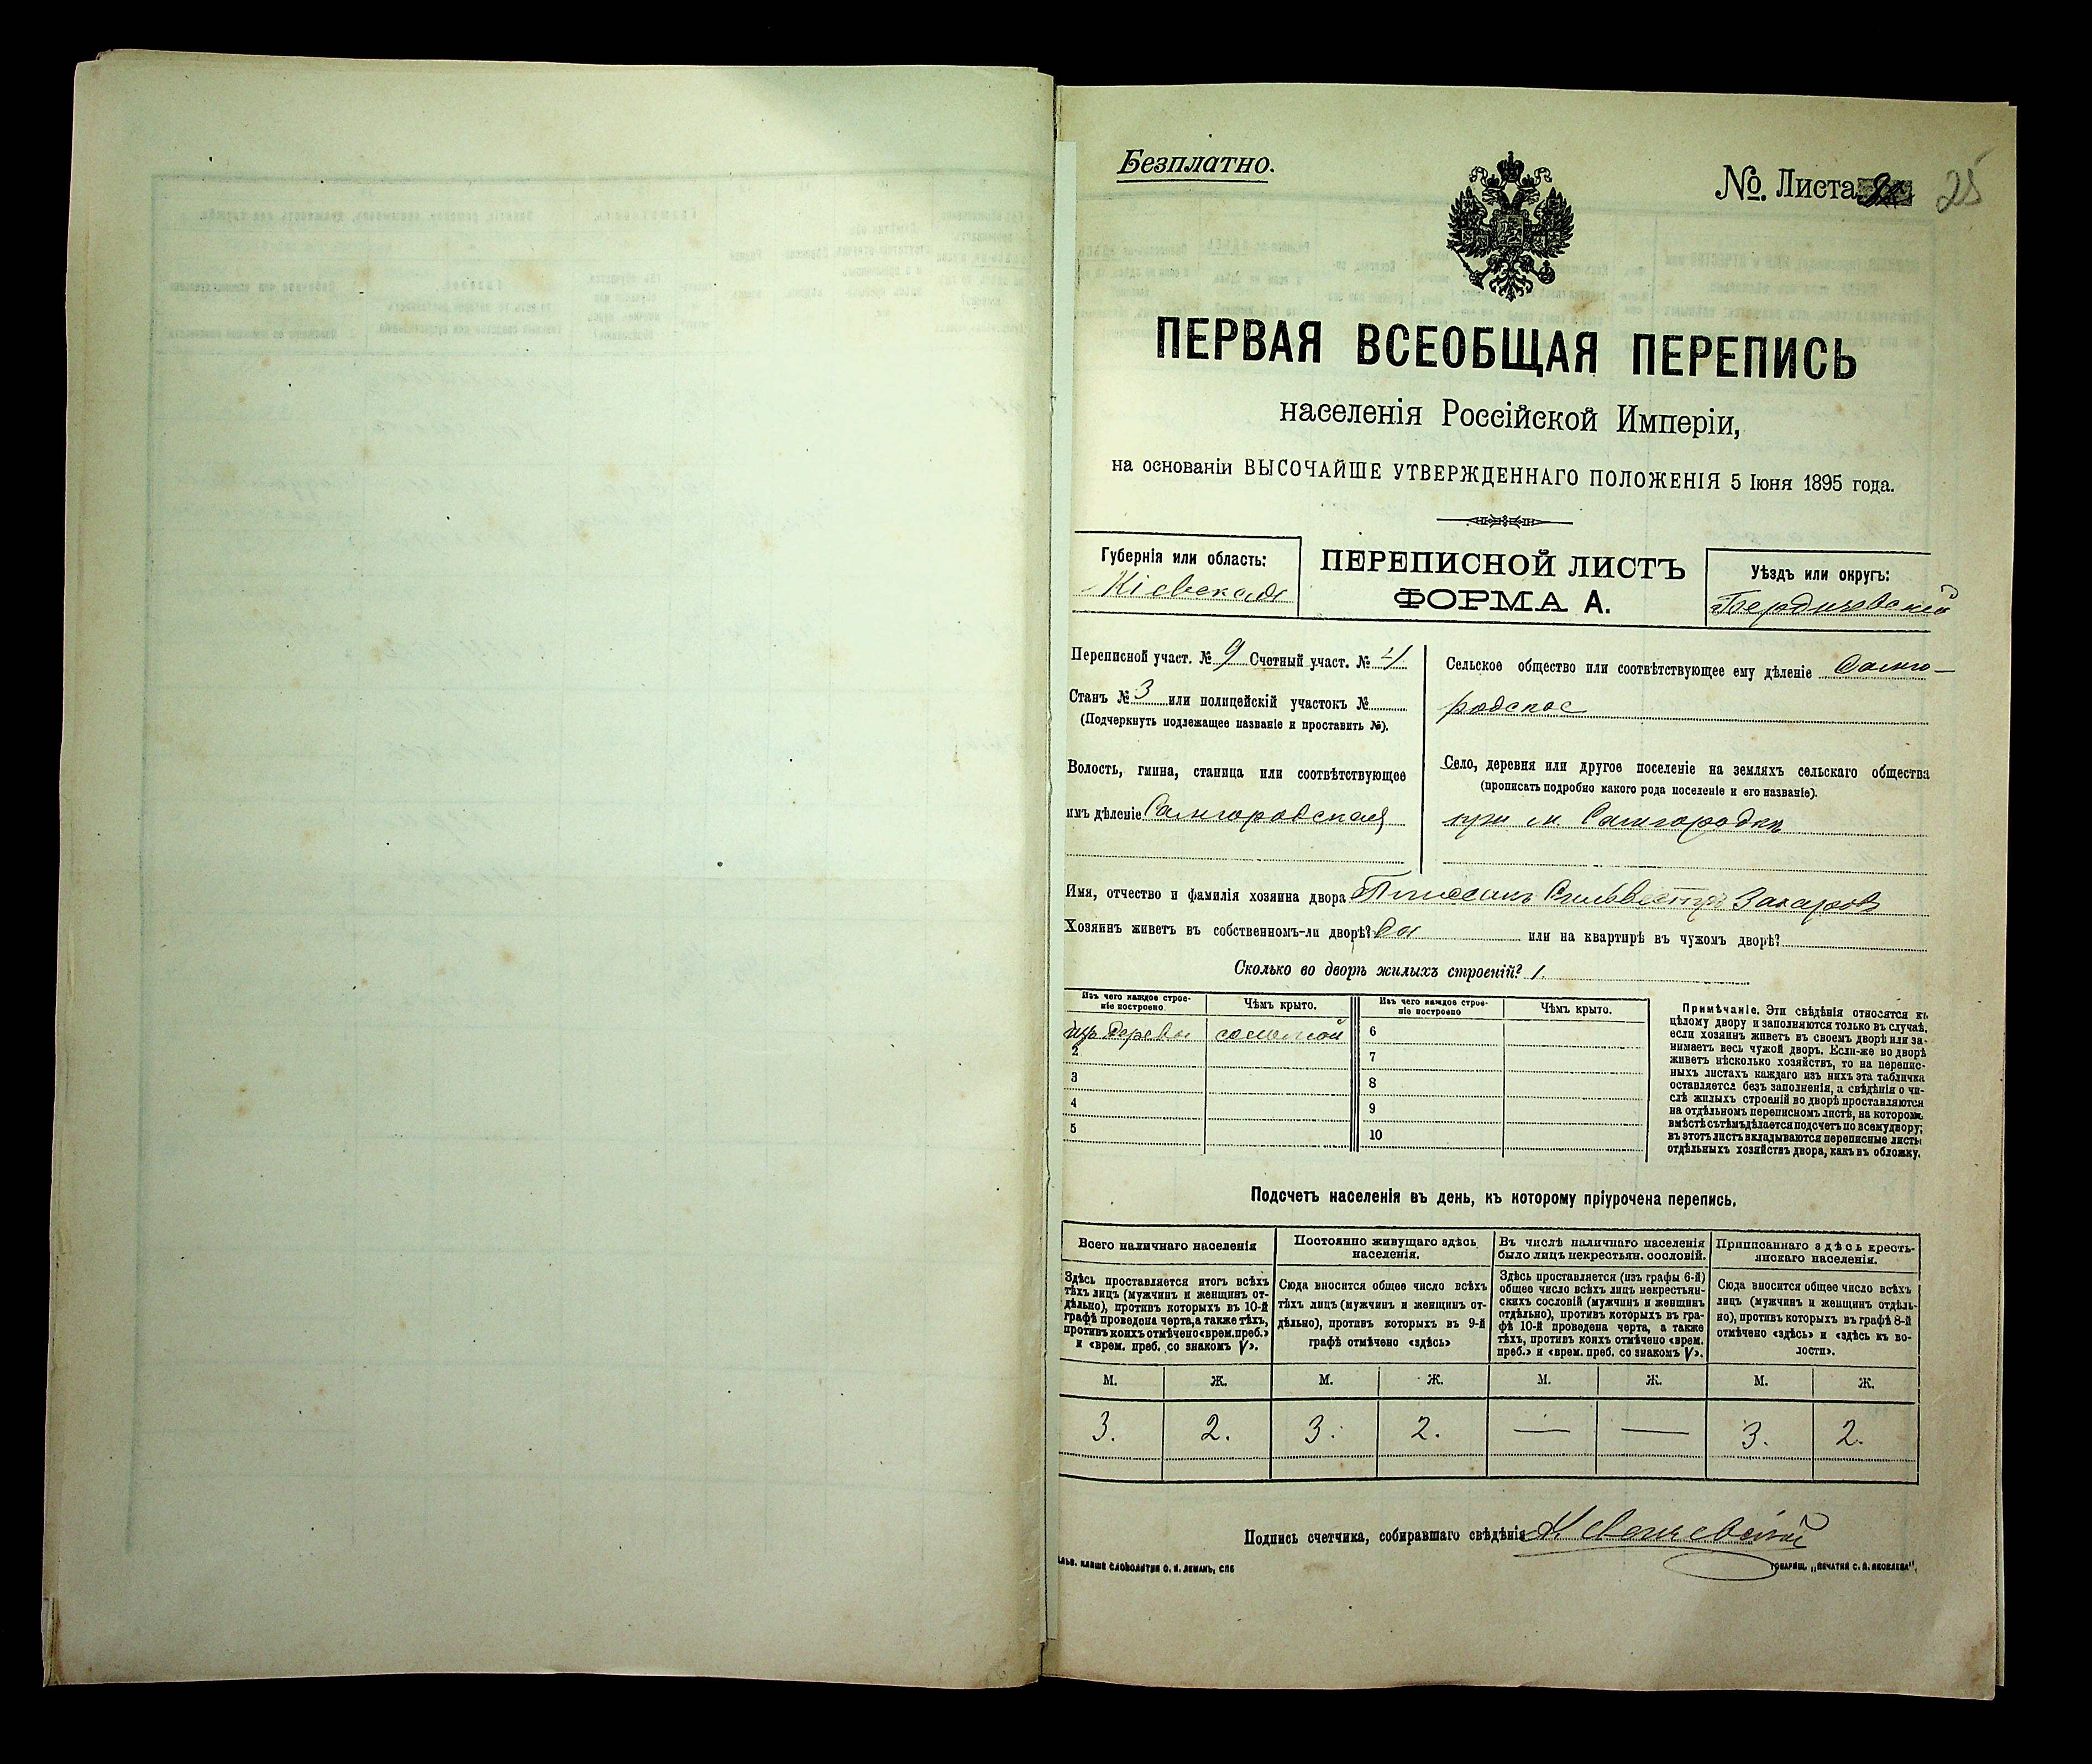 Безплатно.
№ Листа 25
ПЕРВАЯ ВСЕОБЩАЯ ПЕРЕПИСЬ
населенія Россійской Имперіи,
на основаніи ВЫСОЧАЙШЕ УТВЕРЖДЕННАГО ПОЛОЖЕНІЯ 5 Іюня 1895 года.
Губернія или область:
Кіевская
ПЕРЕПИСНОЙ ЛИСТЪ
ФОРМА А.
Уѣздъ или округъ:
Бердичевскій
Переписной участ. № 9 Счетный участ. № 4
Станъ № 3 или полицейскій участокъ №
(Подчеркнуть подлежащее названіе и проставить №).
Волость, гмина, станица или соотвѣтствующее
имъ дѣленіе Самгородская
Сельское общество или соотвѣтствующее ему дѣленіе Самго-
родское
Село, деревня или другое поселеніе на земляхъ сельскаго общества
(прописать подробно какого рода поселеніе и его названіе).
при м. Самгородкѣ
Имя, отчество и фамилія хозяина двора Сильвестръ Захаровъ
Хозяинъ живетъ въ собственномъ-ли дворѣ? Да или на квартирѣ въ чужомъ дворѣ?
Сколько во дворѣ жилыхъ строеній? 1.
Изъ чего каждое строе-
ніе построено
Чѣмъ крыто.
Изъ чего каждое строе-
ніе построено
Чѣмъ крыто.
изъ дерева соломой 6
2 7
3 8
4 9
5 10
Примѣчаніе. Эти свѣдѣнія относятся къ
цѣлому двору и заполняются только въ случаѣ,
если хозяинъ живетъ въ своемъ дворѣ или за-
нимаетъ весь чужой дворъ. Если-же во дворѣ
живетъ нѣсколько хозяйствъ, то на перепис-
ныхъ листахъ каждаго изъ нихъ эта табличка
оставляется безъ заполненія, а свѣдѣнія о чи-
слѣ жилыхъ строеній во дворѣ проставляются
на отдѣльномъ переписномъ листѣ, на которомъ
вмѣстѣ съ тѣмъ дѣлается подсчетъ по всему двору;
въ этотъ листъ вкладываются переписные листы
отдѣльныхъ хозяйствъ двора, какъ въ обложку.
Подсчетъ населенія въ день, къ которому пріурочена перепись.
Всего наличнаго населенія
Здѣсь проставляется итогъ всѣхъ
тѣхъ лицъ (мужчинъ и женщинъ от-
дѣльно), противъ которыхъ въ 10-й
графѣ проведена черта, а также тѣхъ,
противъ коихъ отмѣчено «врем. преб.»
и «врем. преб. со знакомъ V».
Постоянно живущаго здѣсь
населенія.
Сюда вносится общее число всѣхъ
тѣхъ лицъ (мужчинъ и женщинъ от-
дѣльно), противъ которыхъ въ 9-й
графѣ отмѣчено «здѣсь»
Въ числѣ наличнаго населенія
было лицъ некрестьян. сословій.
Здѣсь проставляется (изъ графы 6-й)
общее число всѣхъ лицъ некрестьян-
скихъ сословій (мужчинъ и женщинъ
отдѣльно), противъ которыхъ въ гра-
фѣ 10-й проведена черта, а также
тѣхъ, противъ коихъ отмѣчено «врем.
преб.» и «врем. преб. со знакомъ V».
Приписаннаго здѣсь кресть-
янскаго населенія.
Сюда вносится общее число всѣхъ
лицъ (мужчинъ и женщинъ отдѣль-
но), противъ которыхъ въ графѣ 8-й
отмѣчено «здѣсь» и «здѣсь къ во-
лости».
М. Ж. М. Ж. М. Ж. М. Ж.
3. 2. 3. 2. — — 3. 2.
Подпись счетчика, собиравшаго свѣдѣнія
СЛОВОЛИТНИ О. И. ЛЕМАНЪ, СПБ
ТОВАРИЩ. „ПЕЧАТНЯ С. П. ЯКОВЛЕВА“.